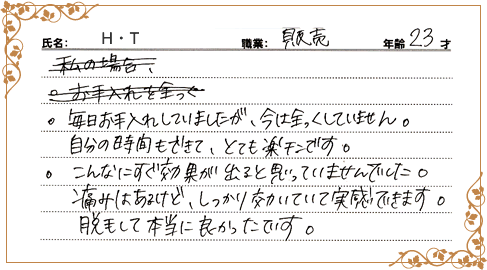 氏名: H・T 職業: 販売 年齢 23 才
私の場合、
。お手入れを全っく
。毎日お手入れしていましたが、今は全っくしていません。
自分の時間もできて、とても楽チンです。
。こんなにすぐ効果が出ると思っていませんでした。
痛みはあるけど、しっかり効いていて実感できます。
脱毛して本当に良かったです。